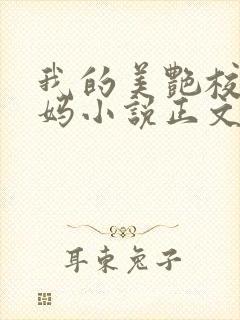 我的美艷校
妈小說正文
耳东兔子